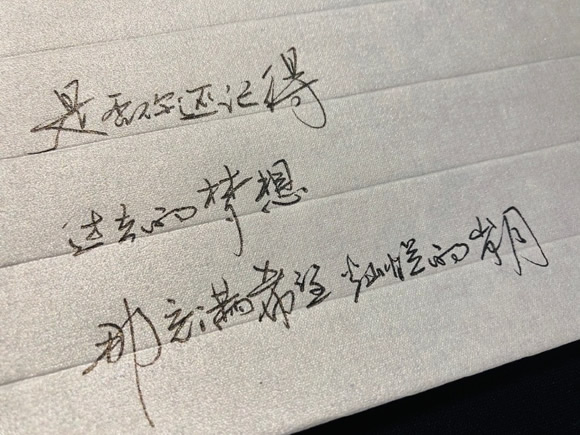 是否你还记得
过去的梦想
那充满希望灿烂的岁月